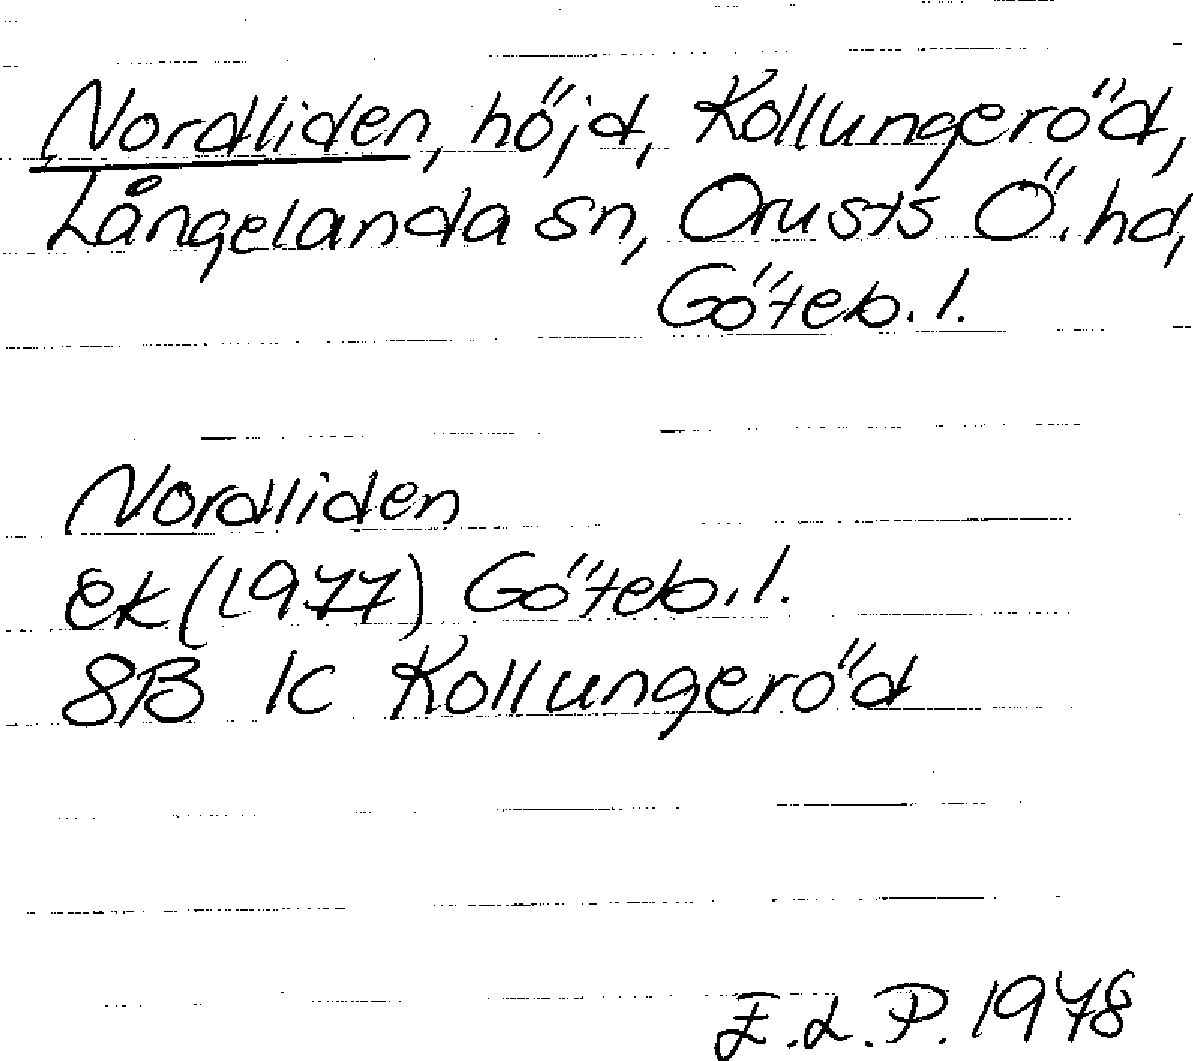 Nordliden, höjd, Kollungeröd,
Långelanda sn, Orusts Ö. hd,
Göteb. l.
Nordliden
ek (1977) Göteb. l.
8B 1c Kollungeröd
E.L.P. 1978